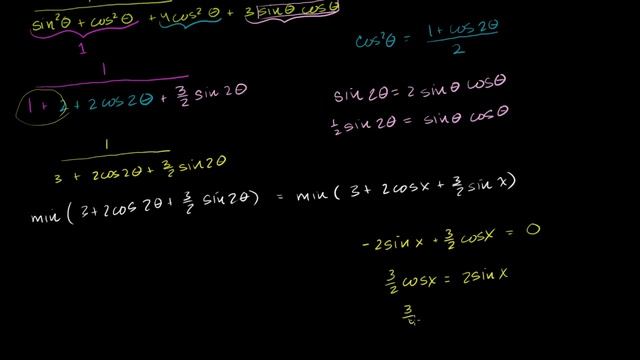 sin²θ + cos²θ + 4cos²θ + 3 sinθ cosθ
1
cos²θ = (1 + cos2θ)/2
1
1 + 2 + 2cos2θ + 3/2 sin2θ
sin2θ = 2 sinθ cosθ
1/2 sin2θ = sinθ cosθ
1
3 + 2cos2θ + 3/2 sin2θ
min(3 + 2cos2θ + 3/2 sin2θ) = min(3 + 2cosx + 3/2 sinx)
-2sinx + 3/2 cosx = 0
3/2 cosx = 2sinx
3